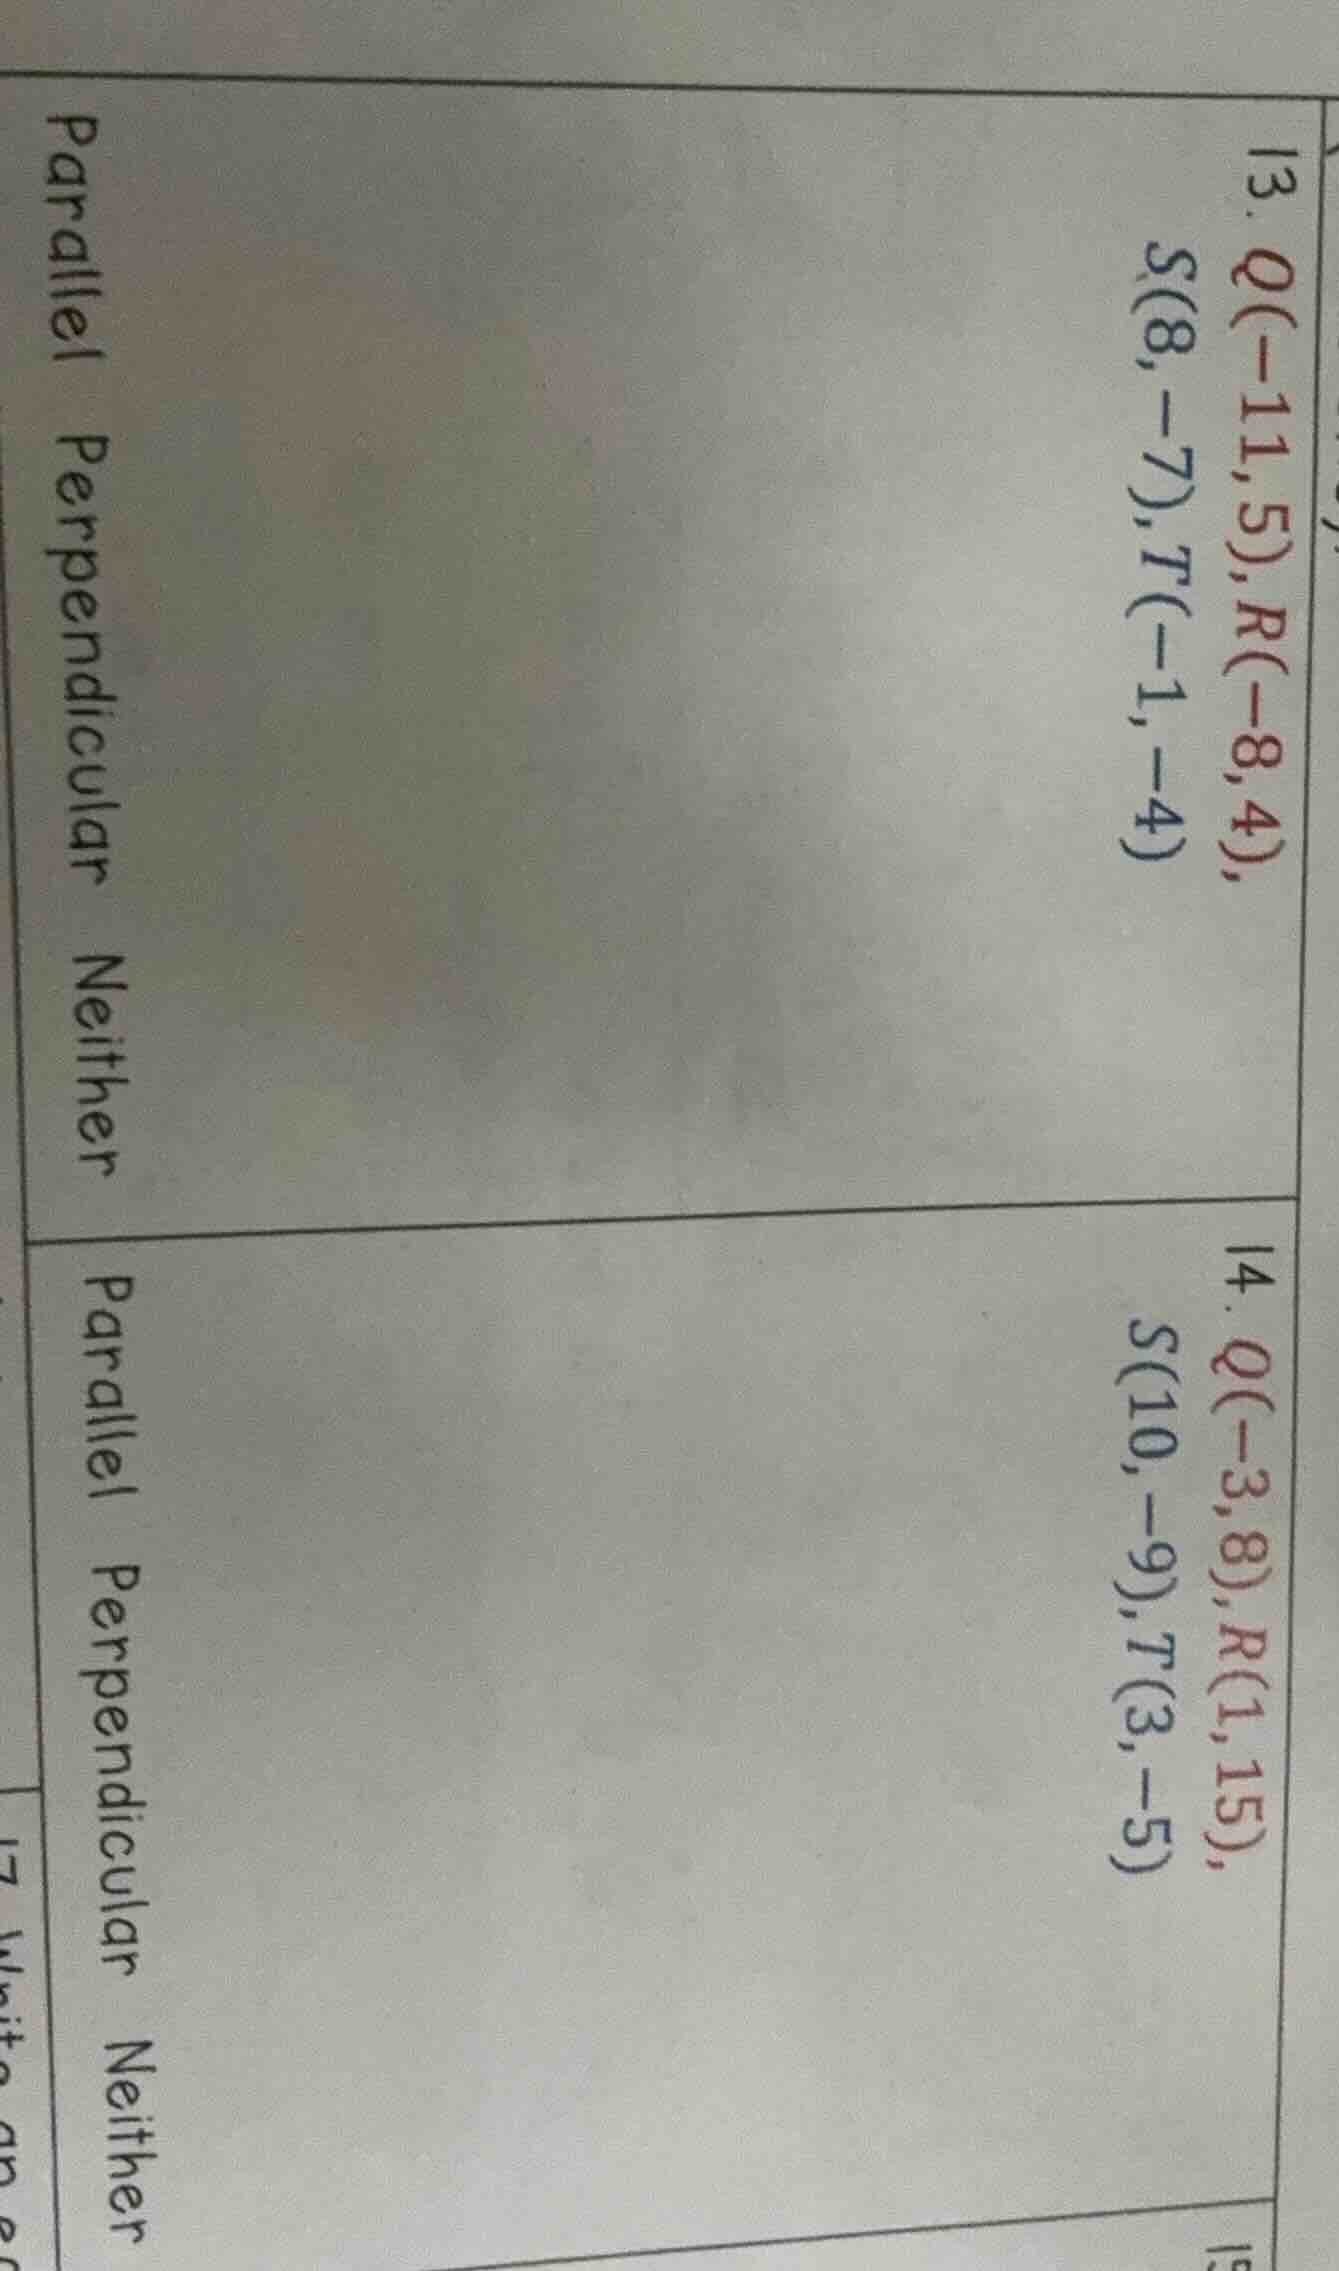 13. Q(−11, 5), R(−8, 4),
S(8, −7), T(−1, −4)
Parallel Perpendicular Neither
14. Q(−3, 8), R(1, 15),
S(10, −9), T(3, −5)
Parallel Perpendicular Neither
17. Write an